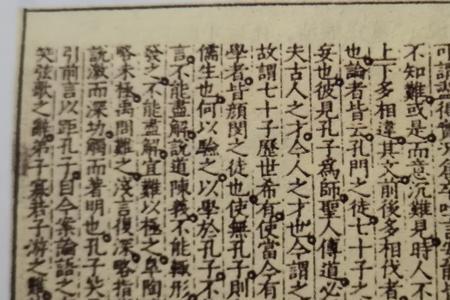 可謂盡得實況倉卒吐言安能
不知難或是而意沉難見時人不
上下多相違其文前後多相伐者
也論者皆云孔門之徒七十子之
妄也彼見孔子爲師聖人傳道必
夫古人之才今人之才也今謂之
故謂七十子歷世希有使當今有
學者皆顏閔之徒也使無孔子則
儒生也何以驗之以學於孔子不
言不能盡解說道陳義不能輒形
發之不能盡解宜難以極之皐陶
略未極禹問難之淺言復深略指
說激而深切觸而著明也孔子笑
引前言以距孔子自今案論語之
笑弦歌之辭弟子寡若子游之難